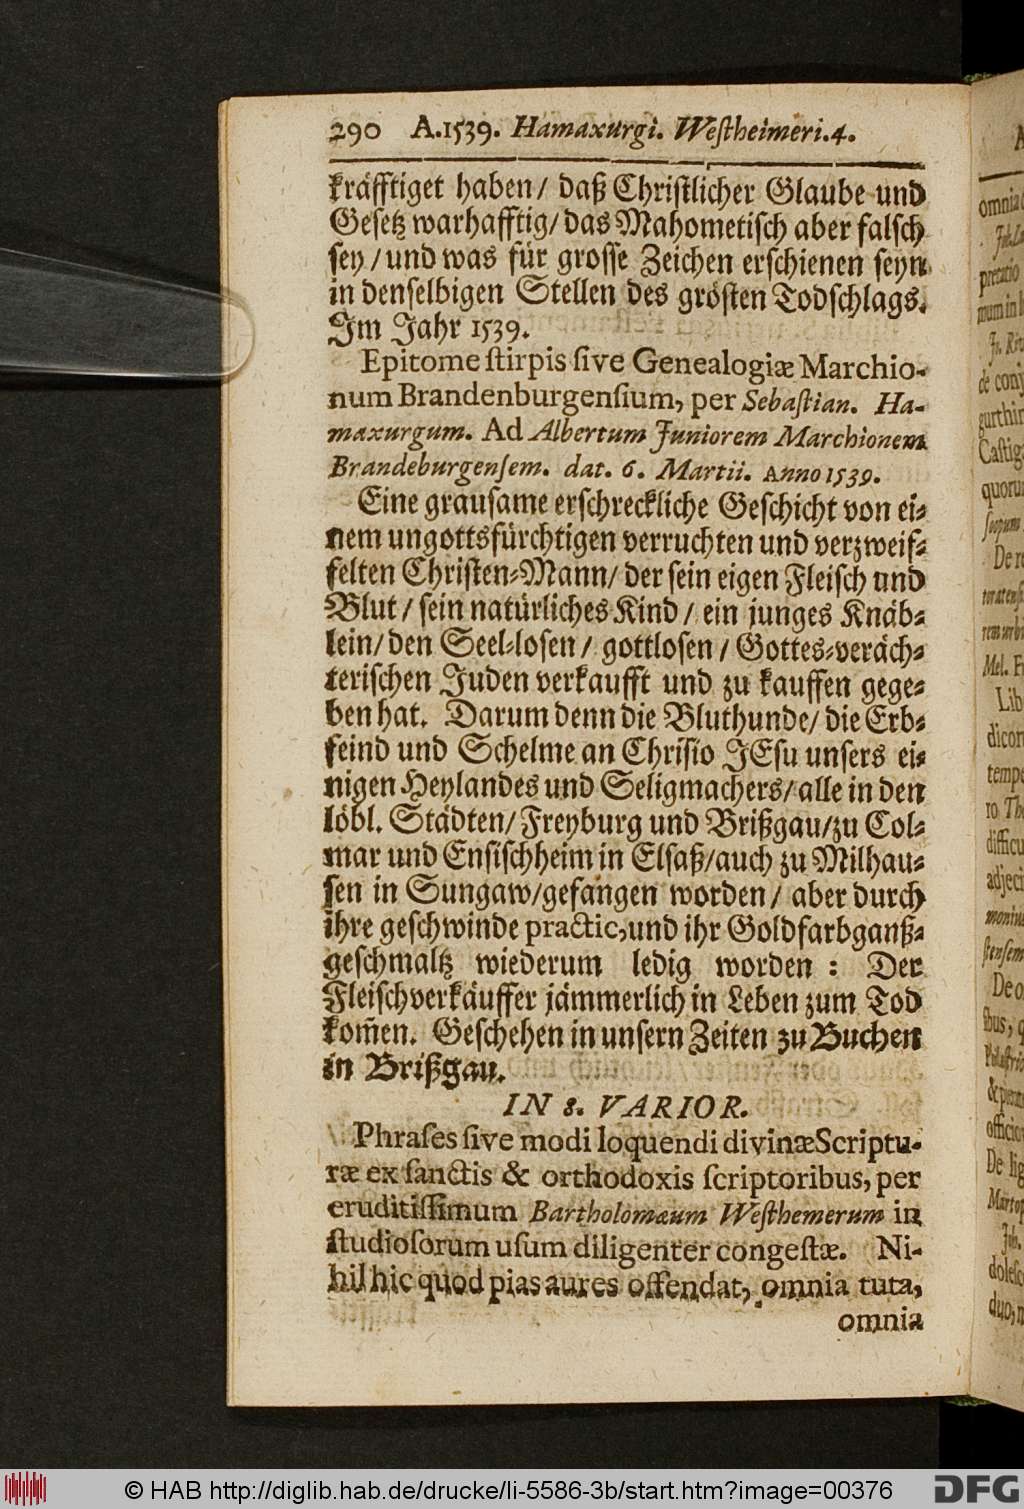 290 A.1539. Hamaxurgi. Westheimeri.4.
kräfftiget haben/ daß Christlicher Glaube und
Gesetz warhafftig/ das Mahometisch aber falsch
sey / und was für grosse Zeichen erschienen seyn
in denselbigen Stellen des grösten Todschlags.
Im Jahr 1539.
Epitome stirpis sive Genealogiæ Marchio-
num Brandenburgensium, per Sebastian. Ha-
maxurgum. Ad Albertum Juniorem Marchionem
Brandeburgensem. dat. 6. Martii. Anno 1539.
Eine grausame erschreckliche Geschicht von ei-
nem ungottsfürchtigen verruchten und verzweif-
felten Christen-Mann/ der sein eigen Fleisch und
Blut / sein natürliches Kind / ein junges Knäb-
lein/ den Seel-losen / gottlosen / Gottes-veräch-
terischen Juden verkaufft und zu kauffen gege-
ben hat. Darum denn die Bluthunde/ die Erb-
feind und Schelme an Christo JEsu unsers ei-
nigen Heylandes und Seligmachers/ alle in den
löbl. Städten/ Freyburg und Brißgau/zu Col-
mar und Ensischheim in Elsaß/auch zu Milhau-
sen in Sungaw/gefangen worden / aber durch
ihre geschwinde practic,und ihr Goldfarbganß-
geschmaltz wiederum ledig worden : Der
Fleischverkäuffer jämmerlich in Leben zum Tod
kom̃en. Geschehen in unsern Zeiten zu Buchen
in Brißgau.
IN 8. VARIOR.
Phrases sive modi loquendi divinæ Scriptu-
ræ ex sanctis & orthodoxis scriptoribus, per
eruditissimum Bartholomæum Westhemerum in
studiosorum usum diligenter congestæ. Ni-
hil hic quod pias aures offendat, omnia tuta,
omnia
omnia
pretatio
de conj
gurthin
Castig
quoru
De re
Mel. F
Lib
dicor
temp
ro The
difficu
adjeci
moniu
stensem
De o
officio
De lig
Joh.
dolesc
© HAB http://diglib.hab.de/drucke/li-5586-3b/start.htm?image=00376
DFG